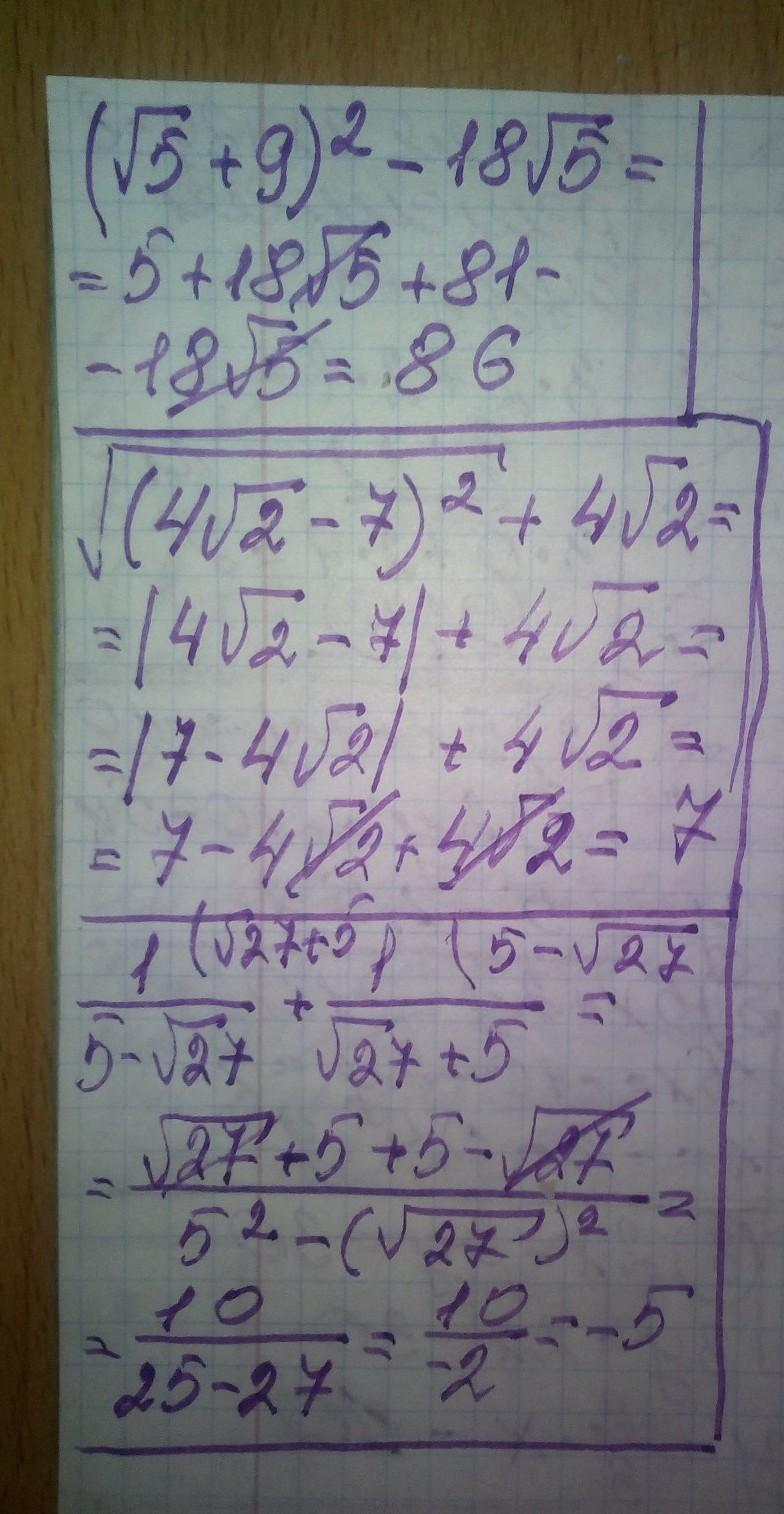 (√5 + 9)² - 18√5 =
= 5 + 18√5 + 81 -
- 18√5 = 86
√(4√2 - 7)² + 4√2 =
= |4√2 - 7| + 4√2 =
= |7 - 4√2| + 4√2 =
= 7 - 4√2 + 4√2 = 7
1 (√27+5 1 (5 - √27
/ 5-√27 + / √27 + 5 =
= √27 + 5 + 5 - √27 / 5² - (√27)² =
= 10 / 25 - 27 = 10 / -2 = -5